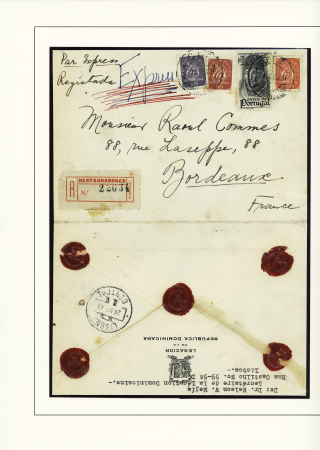 Par Express
Registada
Express
Portugal
Monsieur Raoul Commes
88, rue Laseppe, 88
Bordeaux
France
RESTAURADORES
R
N.º 22034
LISBOA
CENTRAL
LEGACION
DE LA
REPUBLICA DOMINICANA
De: Dr. Nelson W. Mejia
Secretaire de la Légation Dominicaine.-
Rua Castilho No. 59-5º D
Lisboa.-